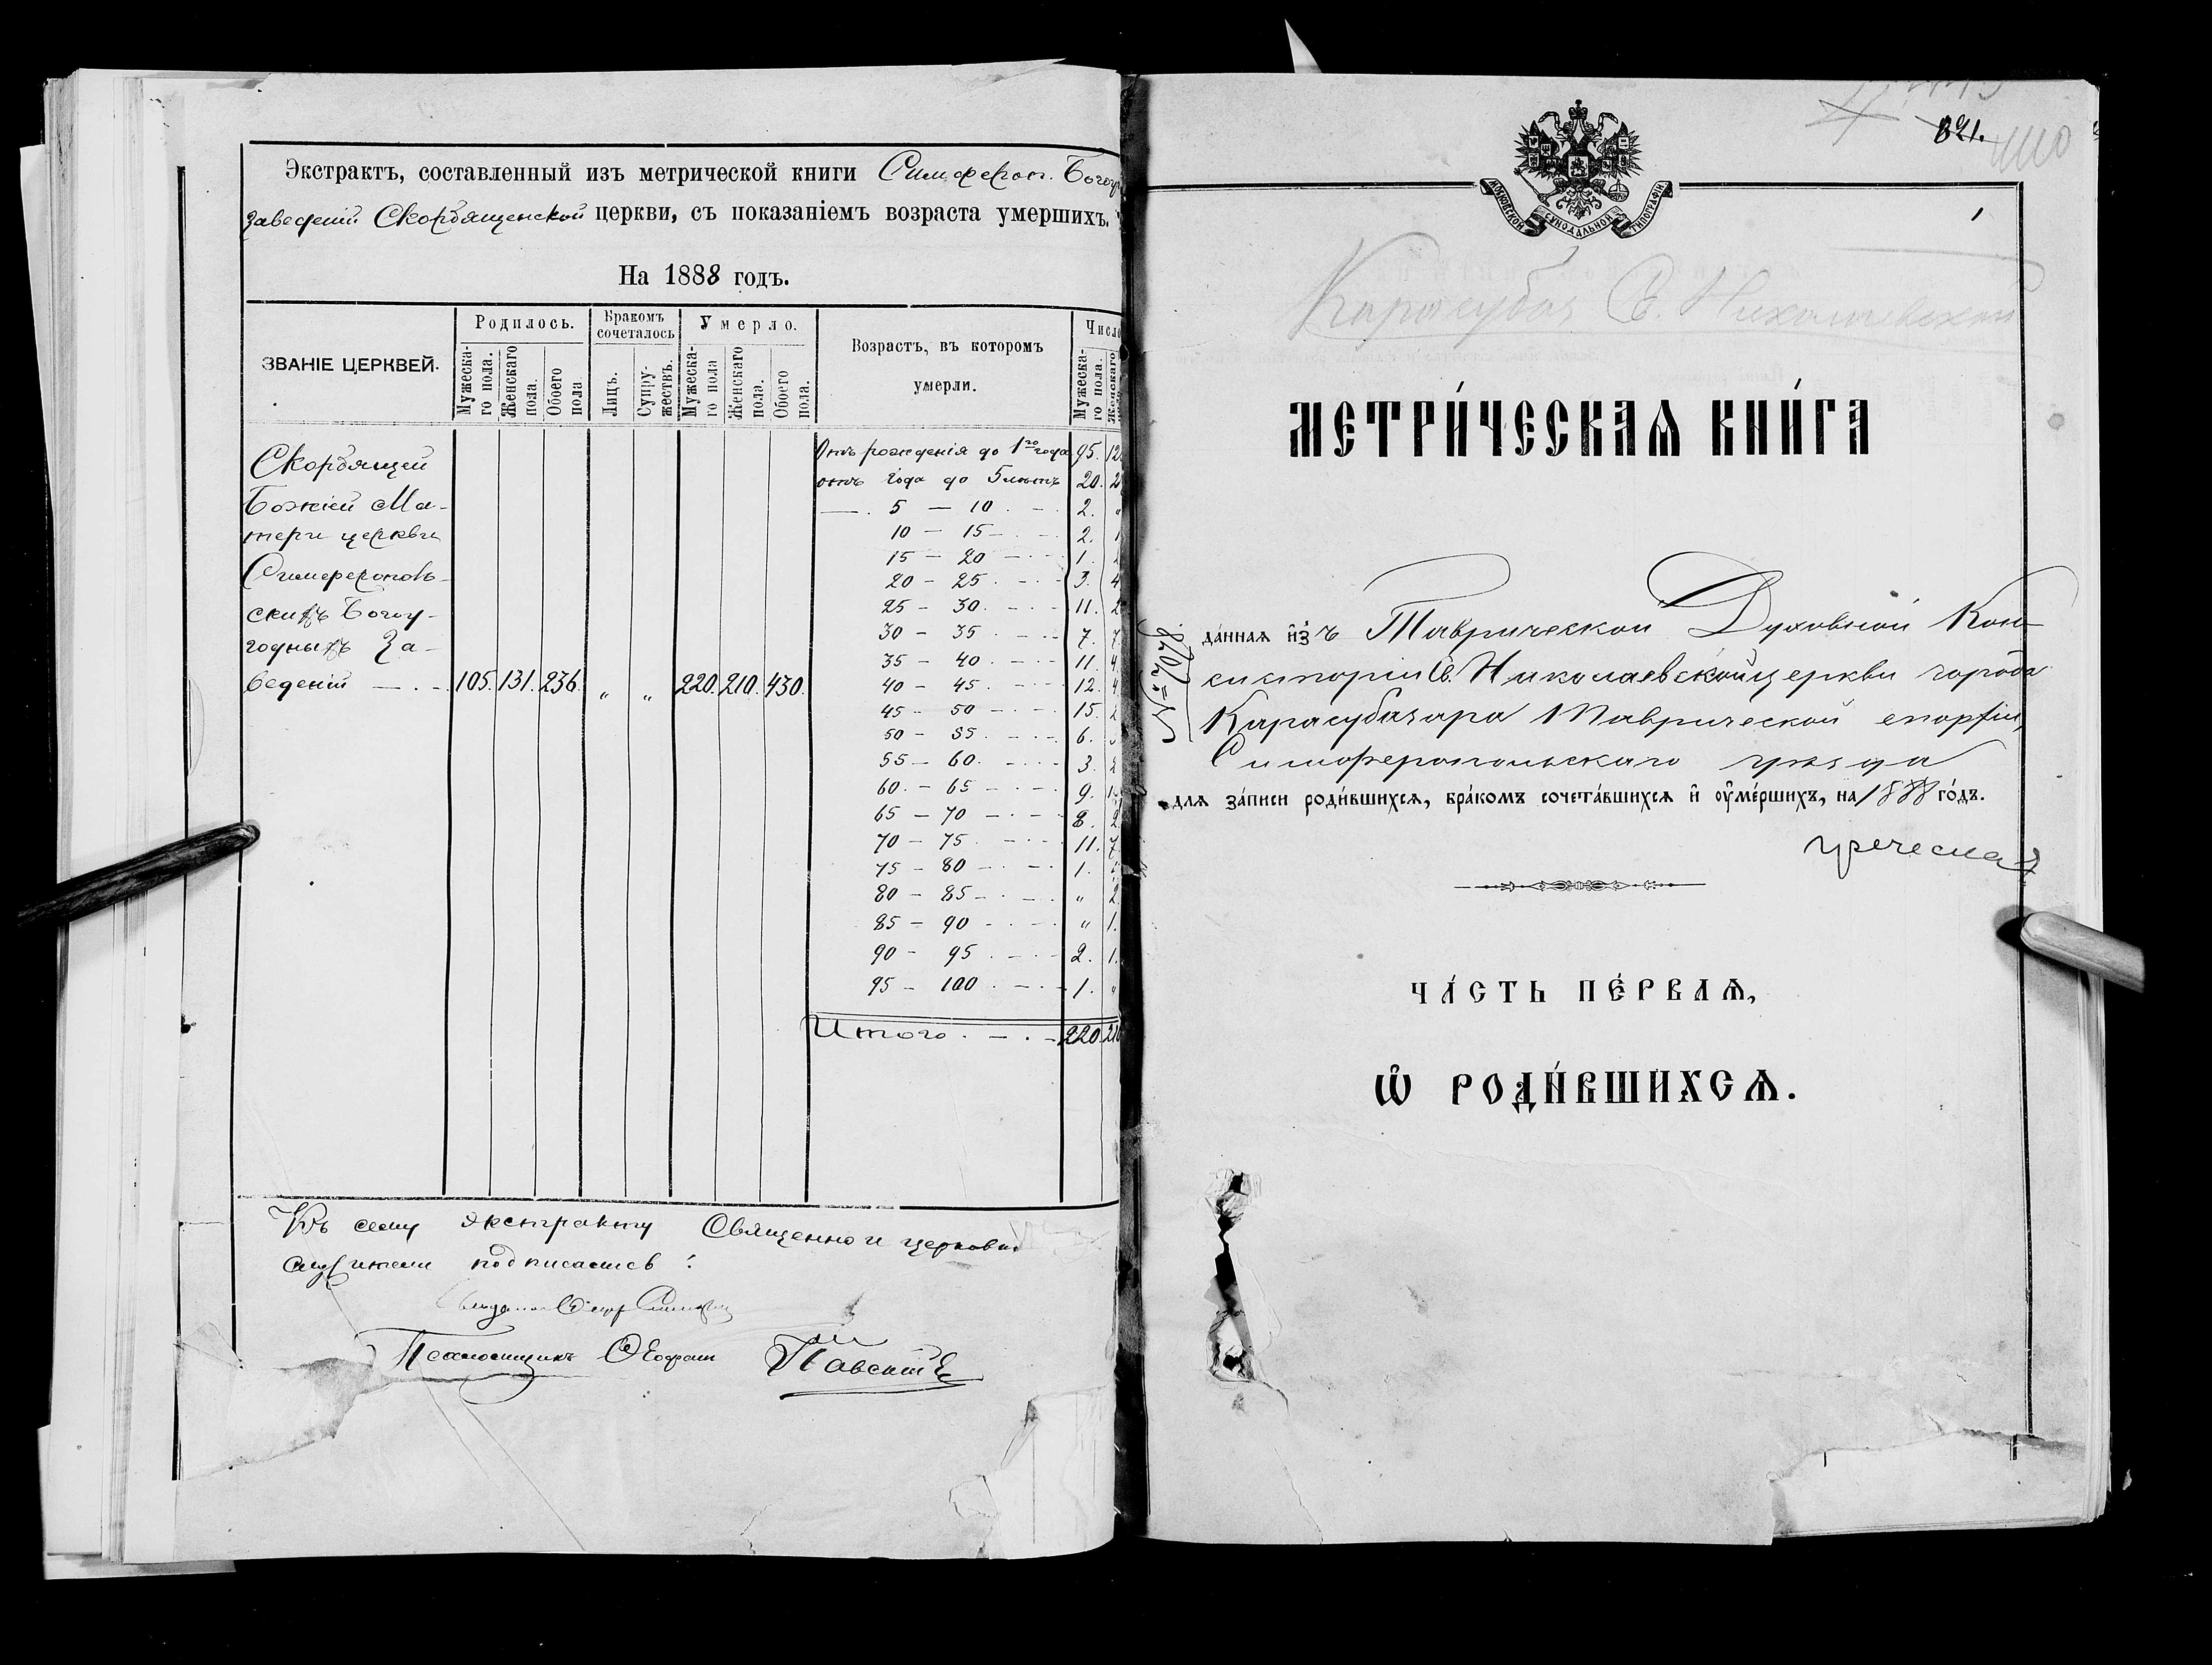 Экстрактъ, составленный изъ метрической книги Симфероп. Богоу
заведеній Скорбященской церкви, съ показаніемъ возраста умершихъ.
На 1888 годъ.
ЗВАНІЕ ЦЕРКВЕЙ.
Родилось.
Мужеска-
го пола.
Женскаго
пола.
Обоего
пола
Бракомъ
сочеталось
Лицъ.
Супру-
жествъ.
Умерло.
Мужеска-
го пола
Женскаго
пола.
Обоего
пола.
Возрастъ, въ которомъ
умерли.
Число
Мужеска-
го пола.
Женскаго
Скорбящей
Божіей Ма-
тери церкви
Симферополь-
скихъ Богоу-
годныхъ За-
веденій — . — 105. 131. 236. " " 220. 210. 430.
Отъ рожденія до 1го года 95.
отъ 1 года до 5 лѣтъ 20.
— . 5 — 10 . — . 2. "
10 — 15 — . — . 2. 1
15 — 20 — . — . 1.
20 — 25 . — . — 3. 4
25 — 30 . — . — 11. 2
30 — 35 . — . — 7. 7.
35 — 40 . — . — 11. 4.
40 — 45 . — . — 12. 4.
45 — 50 — . — . 15. 2
50 — 55 . — . — 6.
55 — 60 . — . — 3. 2
60 . — 65 — . — . 9.
65 — 70 — . — . 8. 2
70 — 75 . — . — 11. 7.
75 — 80 — . — . 1.
80 — 85 — . — . " 2.
85 — 90 — . — . " 1.
90 — 95 . — . — 2. 1.
95 — 100 . — . — 1. "
Итого . — . — 220. 210
Къ сему экстракту Священно и церковно
служители подписались:
Псаломщикъ Павскій
821.
1
МОСКОВСКОЙ СѴНОДАЛЬНОЙ ТИПОГРАФІИ
Карасубаз С. Николаевской
МЕТРИ́ЧЕСКАѦ КНИ́ГА
да́ннаѧ и҆зъ Таврической Духовной Кон
систоріи Св. Николаевской церкви города
Карасубазара Таврической епархіи,
Симферопольскаго уѣзда
для за́писи роди́вшихсѧ, бра́комъ сочета́вшихсѧ и҆ оу҆ме́ршихъ, на 1888 го́дъ.
греческая
ЧА́СТЬ ПЕ́РВАѦ,
Ѽ РОДИ́ВШИХСѦ.